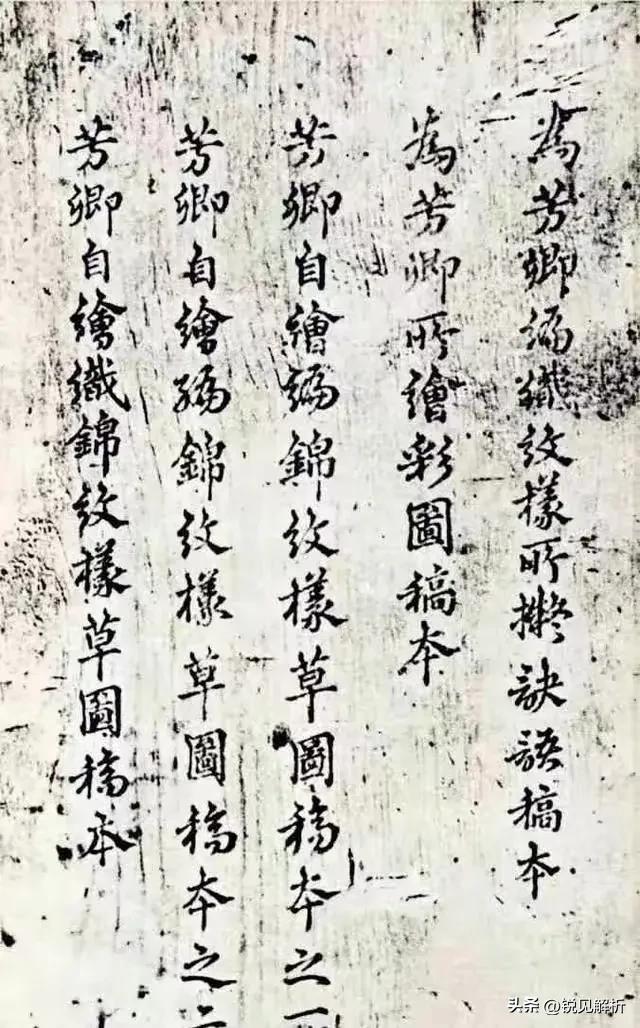 為芳卿編織紋樣所擬訣語稿本
為芳卿所繪彩圖稿本
芳卿自繪編錦紋樣草圖稿本之一
芳卿自繪編錦紋樣草圖稿本之二
芳卿自繪織錦紋樣草圖稿本
头条 @锐见解析